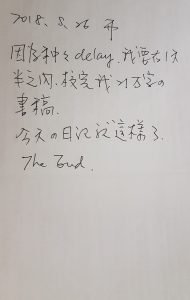 2018.8.26 市
因為種々delay,我要在1天
半之內,校完我21万字の
書稿.
今天の日記就這樣了.
The End.